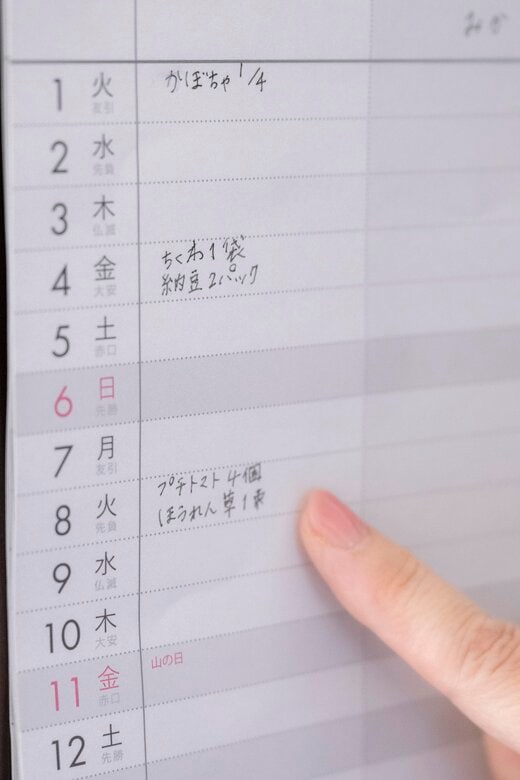 みか
1 火 かぼちゃ 1/4
友引
2 水
先負
3 木
仏滅
4 金 ちくわ1袋
大安 納豆2パック
5 土
赤口
6 日
先勝
7 月
友引
8 火 プチトマト4個
先負 ほうれん草1束
9 水
仏滅
10 木
大安
11 金 山の日
赤口
12 土
先勝